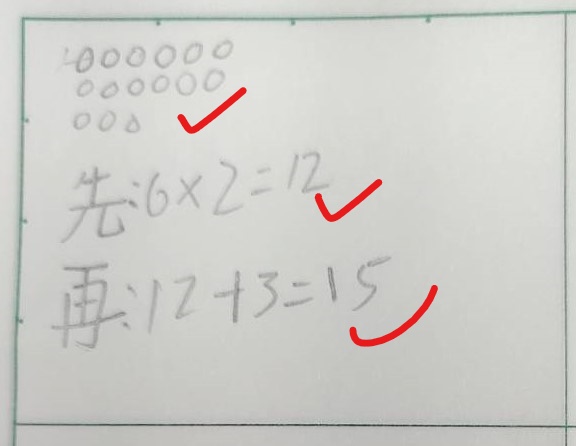 先:6×2=12
再:12+3=15